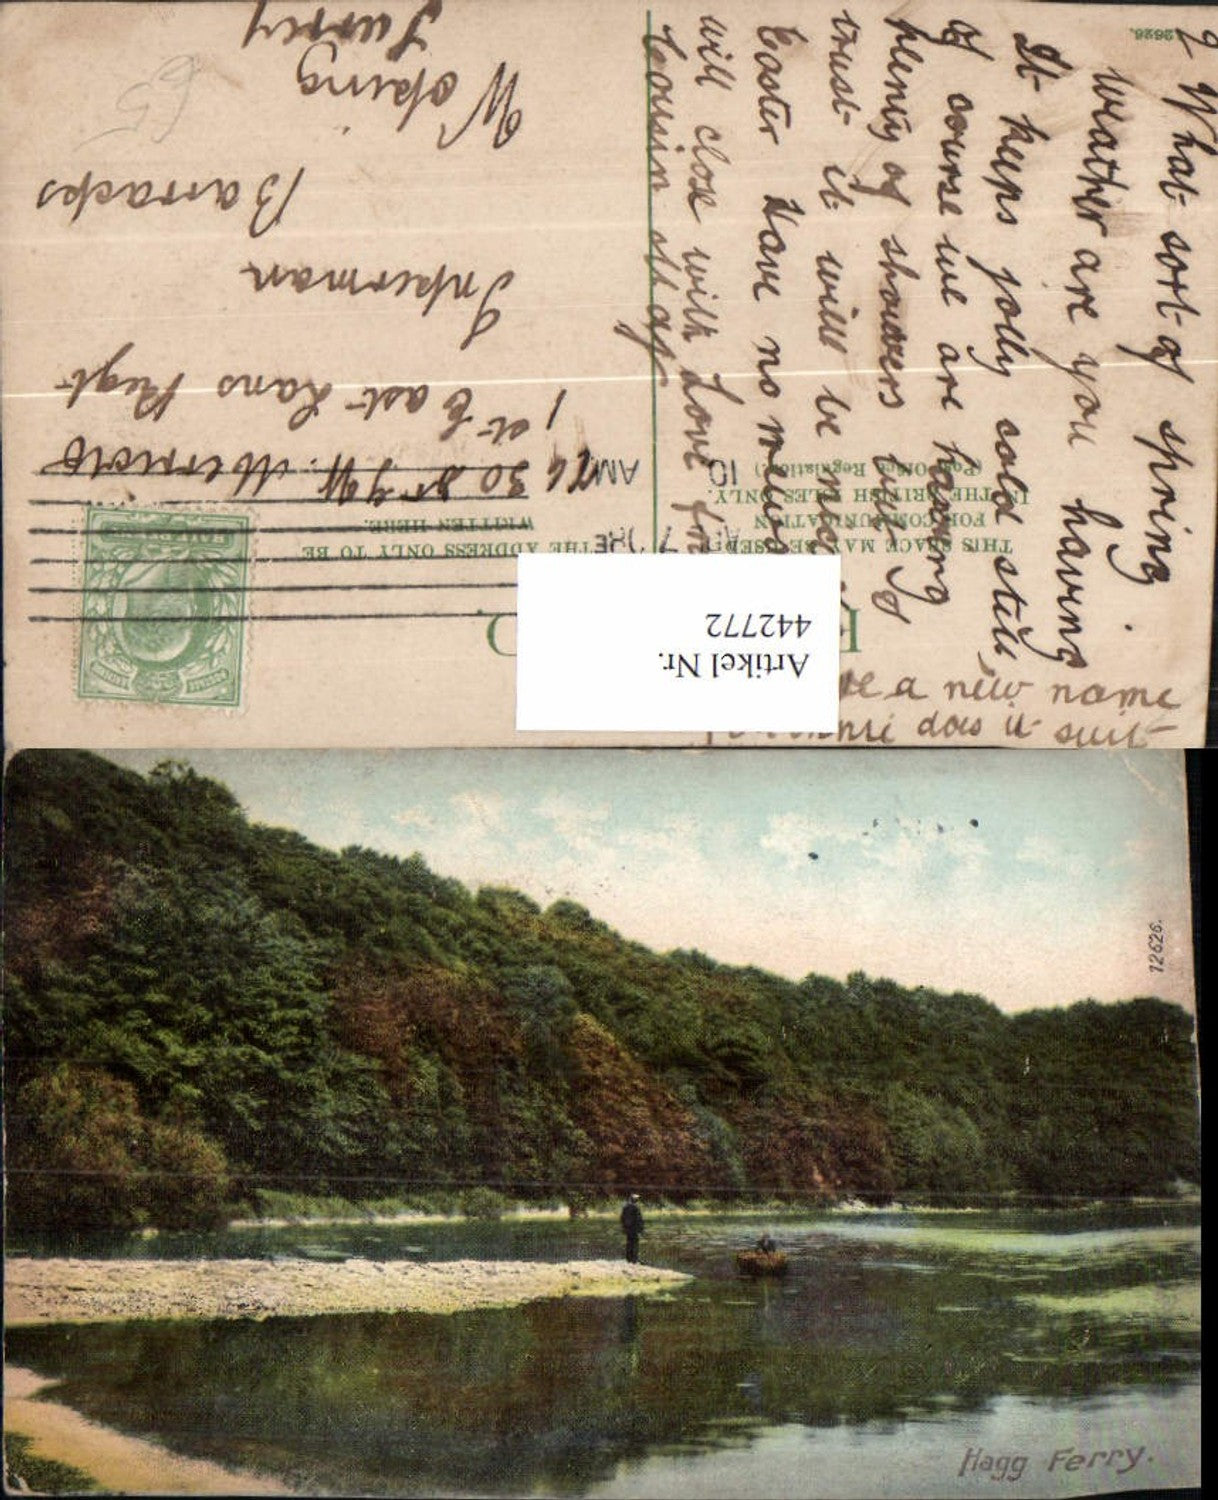 What sort of spring
weather are you having
It keeps jolly cold still
of course we are having
plenty of showers but I
trust it will be nice
Easter Have no news
will close with Love from
Cousin
a new name
does it suit
THIS SPACE MAY BE USED
FOR COMMUNICATION
IN THE BRITISH ISLES ONLY.
(Post Office Regulation.)
THE ADDRESS ONLY TO BE
WRITTEN HERE.
HALF PENNY
1st East Lans Regt
Inkerman
Barracks
Woking
Surrey
12626.
Artikel Nr.
442772
12626.
Hagg Ferry.